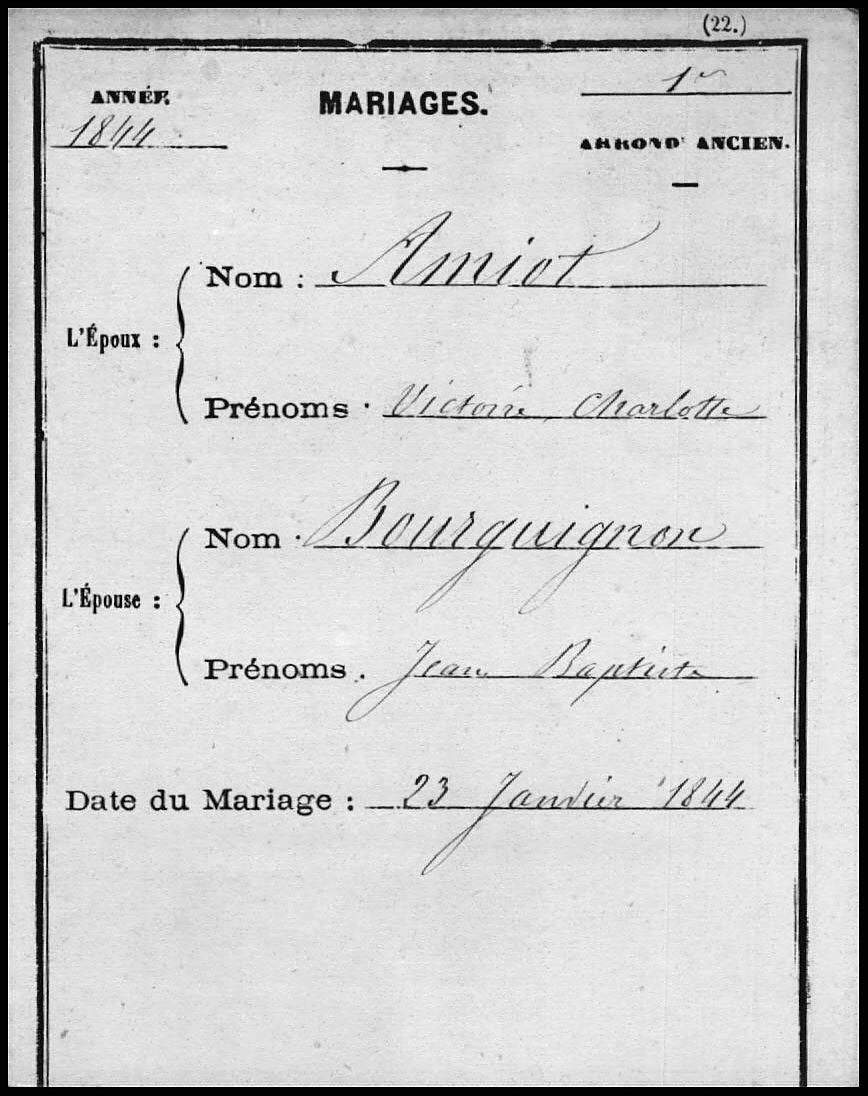 (22.)
ANNÉE
1844
MARIAGES.
1er
ARRONDt ANCIEN.
L'Époux :
Nom : Amiot
Prénoms : Victoire Charlotte
L'Épouse :
Nom : Bourguignon
Prénoms . Jean Baptiste
Date du Mariage : 23 Janvier 1844